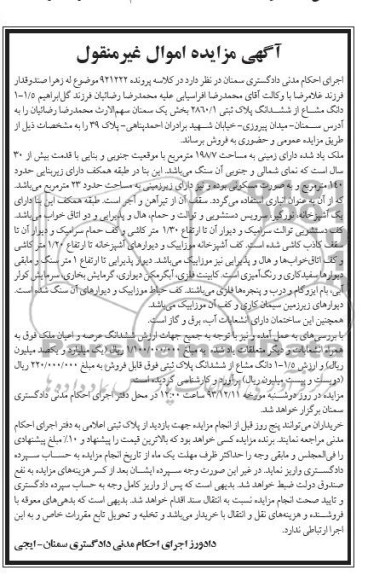 آگهی مزایده اموال غیرمنقول
اجرای احکام مدنی دادگستری سمنان در نظر دارد در کلاسه پرونده ۹۲۱۲۲۲ موضوع له زهرا صندوقدار
فرزند غلامرضا با وکالت آقای محمدرضا افراسیابی علیه محمدرضا رضائیان فرزند گل‌ابراهیم ۱/۵-۱
دانگ مشاع از ششدانگ پلاک ثبتی ۲۸۶۰/۱ بخش یک سمنان سهم‌الارث محمدرضا رضائیان را به
آدرس سمنان- میدان پیروزی- خیابان شهید برادران احمدپناهی- پلاک ۳۹ را به مشخصات ذیل از
طریق مزایده عمومی و حضوری به فروش برساند.
ملک یاد شده دارای زمینی به مساحت ۱۹۸/۷ مترمربع با موقعیت جنوبی و بنایی با قدمت بیش از ۳۰
سال است که نمای شمالی و جنوبی آن سنگ می‌باشد. این بنا در طبقه همکف دارای زیربنایی حدود
۱۴۰ مترمربع و به صورت مسکونی بوده و نیز دارای زیرزمینی به مساحت حدود ۲۳ مترمربع می‌باشد
که از آن به عنوان انباری استفاده می‌گردد. سقف آن از تیرآهن و آجر است. طبقه همکف این بنا دارای
یک آشپزخانه نورگیر، سرویس دستشویی و توالت و حمام، هال و پذیرایی و دو اتاق خواب می‌باشد.
کف دستشویی توالت سرامیک و دیوار آن تا ارتفاع ۱/۳۰ متر کاشی و کف حمام سرامیک و دیوار آن تا
سقف کاذب کاشی شده است. کف آشپزخانه موزاییک و دیوارهای آشپزخانه تا ارتفاع ۱/۲۰ متر کاشی
و کف اتاق‌خواب‌ها و هال و پذیرایی نیز موزاییک می‌باشد. دیوار پذیرایی تا ارتفاع ۱ متر سنگ و مابقی
دیوارها سفیدکاری و رنگ‌آمیزی است. کابینت فلزی، آبگرمکن دیواری، گرمایش بخاری، سرمایش کولر
آبی، بام ایزوگام و درب و پنجره‌ها فلزی می‌باشند. کف حیاط موزاییک و دیوارهای آن سنگ شده است.
دیوارهای زیرزمین سیمان کاری و کف آن موزاییک می‌باشد.
همچنین این ساختمان دارای انشعابات آب، برق و گاز است.
با بررسی‌های به عمل آمده و نیز با توجه به جمیع جهات ارزش ششدانگ عرصه و اعیان ملک فوق به
همراه انشعابات و دیگر متعلقات یاد شده به مبلغ ۱/۱۰۰/۰۰۰/۰۰۰ ریال (یک میلیارد و یکصد میلیون
ریال) و ارزش ۱/۵-۱ دانگ مشاع از ششدانگ پلاک ثبتی فوق قابل فروش به مبلغ ۲۲۰/۰۰۰/۰۰۰ ریال
(دویست و بیست میلیون ریال) برآورد و کارشناسی گردیده است.
مزایده در روز دوشنبه مورخه ۹۳/۱۲/۱۱ ساعت ۱۲:۰۰ در محل دفتر اجرای احکام مدنی دادگستری
سمنان برگزار خواهد شد.
خریداران می‌توانند پنج روز قبل از انجام مزایده جهت بازدید از پلاک ثبتی اعلامی به دفتر اجرای احکام
مدنی مراجعه نمایند. برنده مزایده کسی خواهد بود که بالاترین قیمت را پیشنهاد و ۱۰٪ مبلغ پیشنهادی
را فی‌المجلس و مابقی وجه را حداکثر ظرف مهلت یک ماه از تاریخ انجام مزایده به حساب سپرده
دادگستری واریز نماید. در غیر این صورت وجه سپرده ایشان بعد از کسر هزینه‌های مزایده به نفع
صندوق دولت ضبط خواهد شد. بدیهی است که پس از واریز کامل وجه به حساب سپرده دادگستری
و تایید صحت انجام مزایده نسبت به انتقال سند اقدام خواهد شد. بدیهی است که بدهی‌های معوقه با
فروشنده و هزینه‌های نقل و انتقال با خریدار می‌باشد و تخلیه و تحویل تابع مقررات خاص و به این
اجرا ارتباطی ندارد.
دادورز اجرای احکام مدنی دادگستری سمنان- ایجی